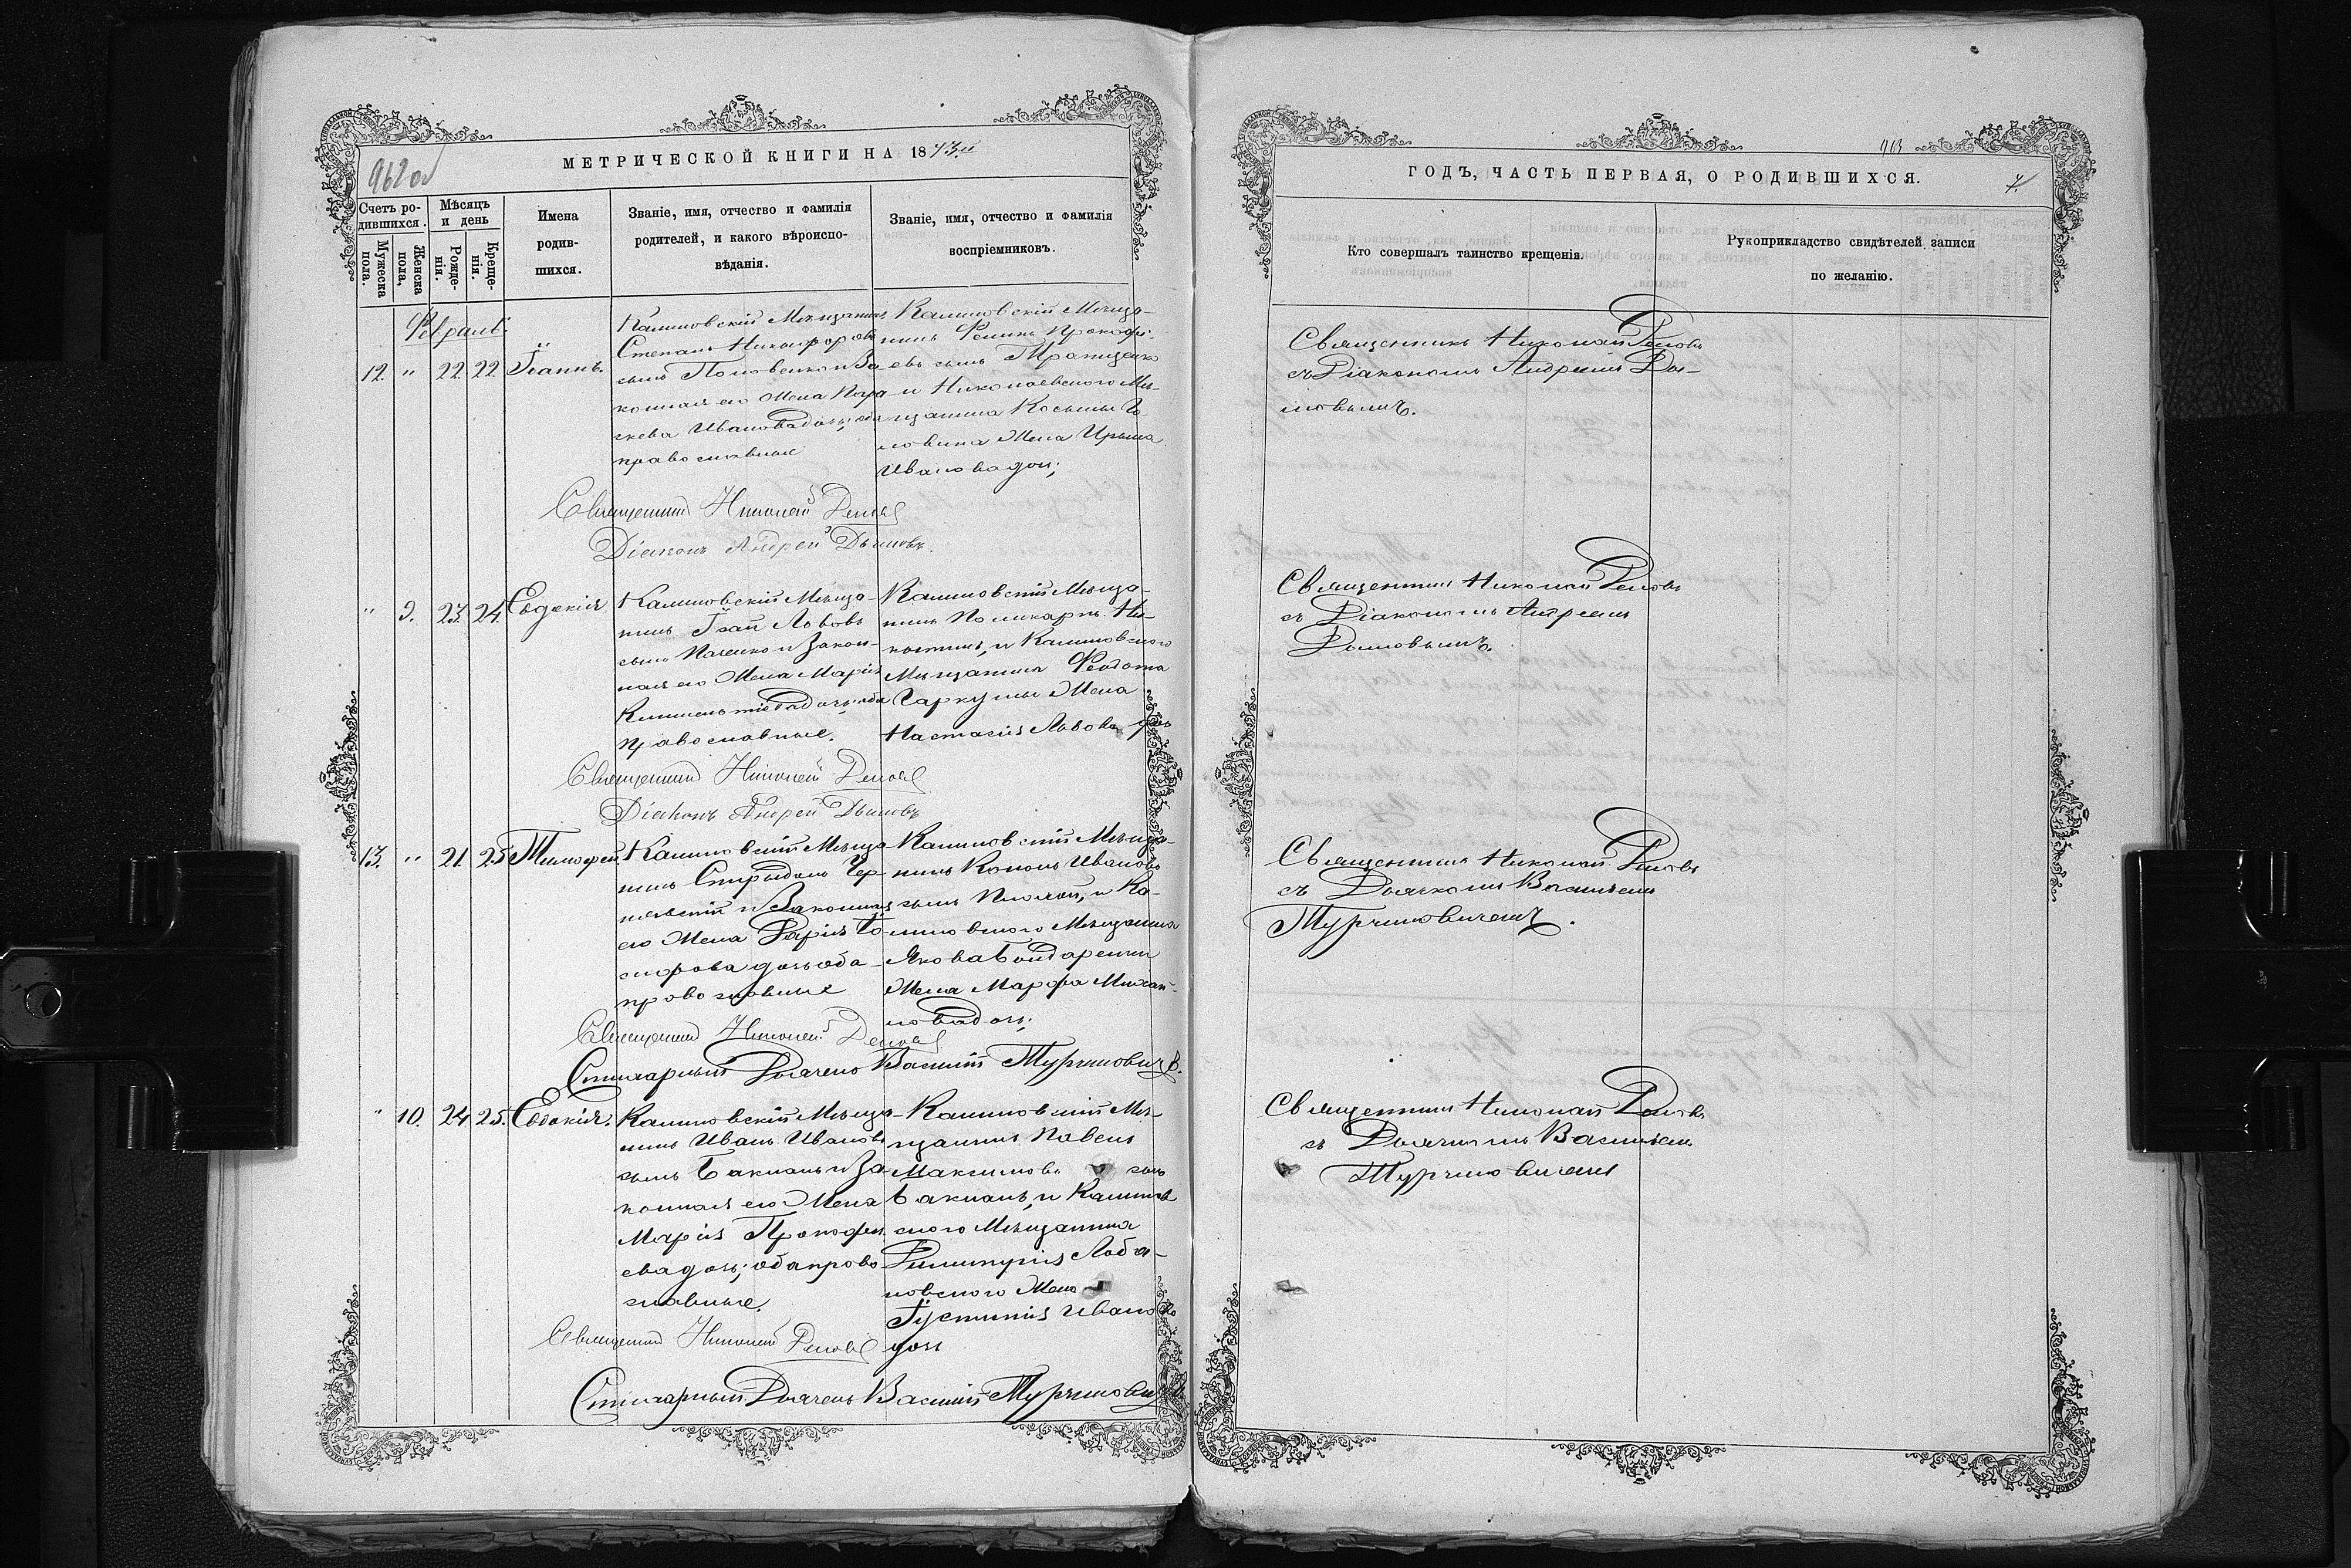 МЕТРИЧЕСКОЙ КНИГИ НА 1873й
962 об
Счетъ ро-
дившихся.
Мужеска
пола.
Женска
пола.
Мѣсяцъ
и день
Рожде-
нія.
Креще-
нія.
Имена
родив-
шихся.
Званіе, имя, отчество и фамилія
родителей, и какого вѣроиспо-
вѣданія.
Званіе, имя, отчество и фамилія
воспріемниковъ.
Февраль.
12. " 22 22 Іоаннъ.
Калиновскій Мѣщанинъ
Степанъ Никифоровъ
сынъ и За
конная его Жена
Ивановадочь; оба
православные
Калиновскій Мѣща-
нинъ Прокофі-
евъ сынъ
и Николаевского Мѣ-
щанина Косьмы
Жена Ирына
Ивановадоч;
Священникъ Николай
Діаконъ Андрей
" 9. 23. 24. Евдокія
Калиновскій Мѣща-
нинъ Львовъ
сынъ и Закон-
ная его Жена Марія
оба
православные.
Калиновскій Мѣща-
нинъ Поликарпъ Ни-
и Калиновского
Мѣщанина Феодота
Жена
Настасія Львова дочь
Священникъ Николай
Діаконъ Андрей
13. " 21 25 Тимофей
Калиновскій Мѣща
нинъ Спиридонъ Чер-
нявскій и Законная
его Жена
дочь оба
православные
Калиновскій Мѣща-
нинъ Кононъ Ивановъ
сынъ и Ка-
линовского Мѣщанина
Якова Бондаренки
Жена Марфа Михай-
ловадочь;
Священникъ Николай
Стихарный Дьячекъ Василій Турчиновичъ.
" 10. 24 25. Евдокія.
Калиновскій Мѣща-
нинъ Иванъ Ивановъ
сынъ Бакланъ и За
конная его Жена
Марія Прокофи
евадочь; оба право
славные.
Калиновскій Мѣ-
щанинъ Павелъ
Максимовъ сынъ
Бакланъ, и Калинов
ского Мѣщанина
Димитрія Лоба-
новского Жена
Іустинія Ивановa
дочь
Священникъ Николай
Стихарный Дьячекъ Василій Турчиновичъ
913
ГОДЪ, ЧАСТЬ ПЕРВАЯ, О РОДИВШИХСЯ.
7.
Кто совершалъ таинство крещенія.
Рукоприкладство свидѣтелей записи
по желанію.
Священникъ Николай
съ Діакономъ Андреемъ
Священникъ Николай
съ Діакономъ Андреемъ
Священникъ Николай
съ Дьячкомъ Василіемъ
Турчиновичемъ.
Священникъ Николай
съ Дьячкомъ Василіемъ
Турчиновичемъ